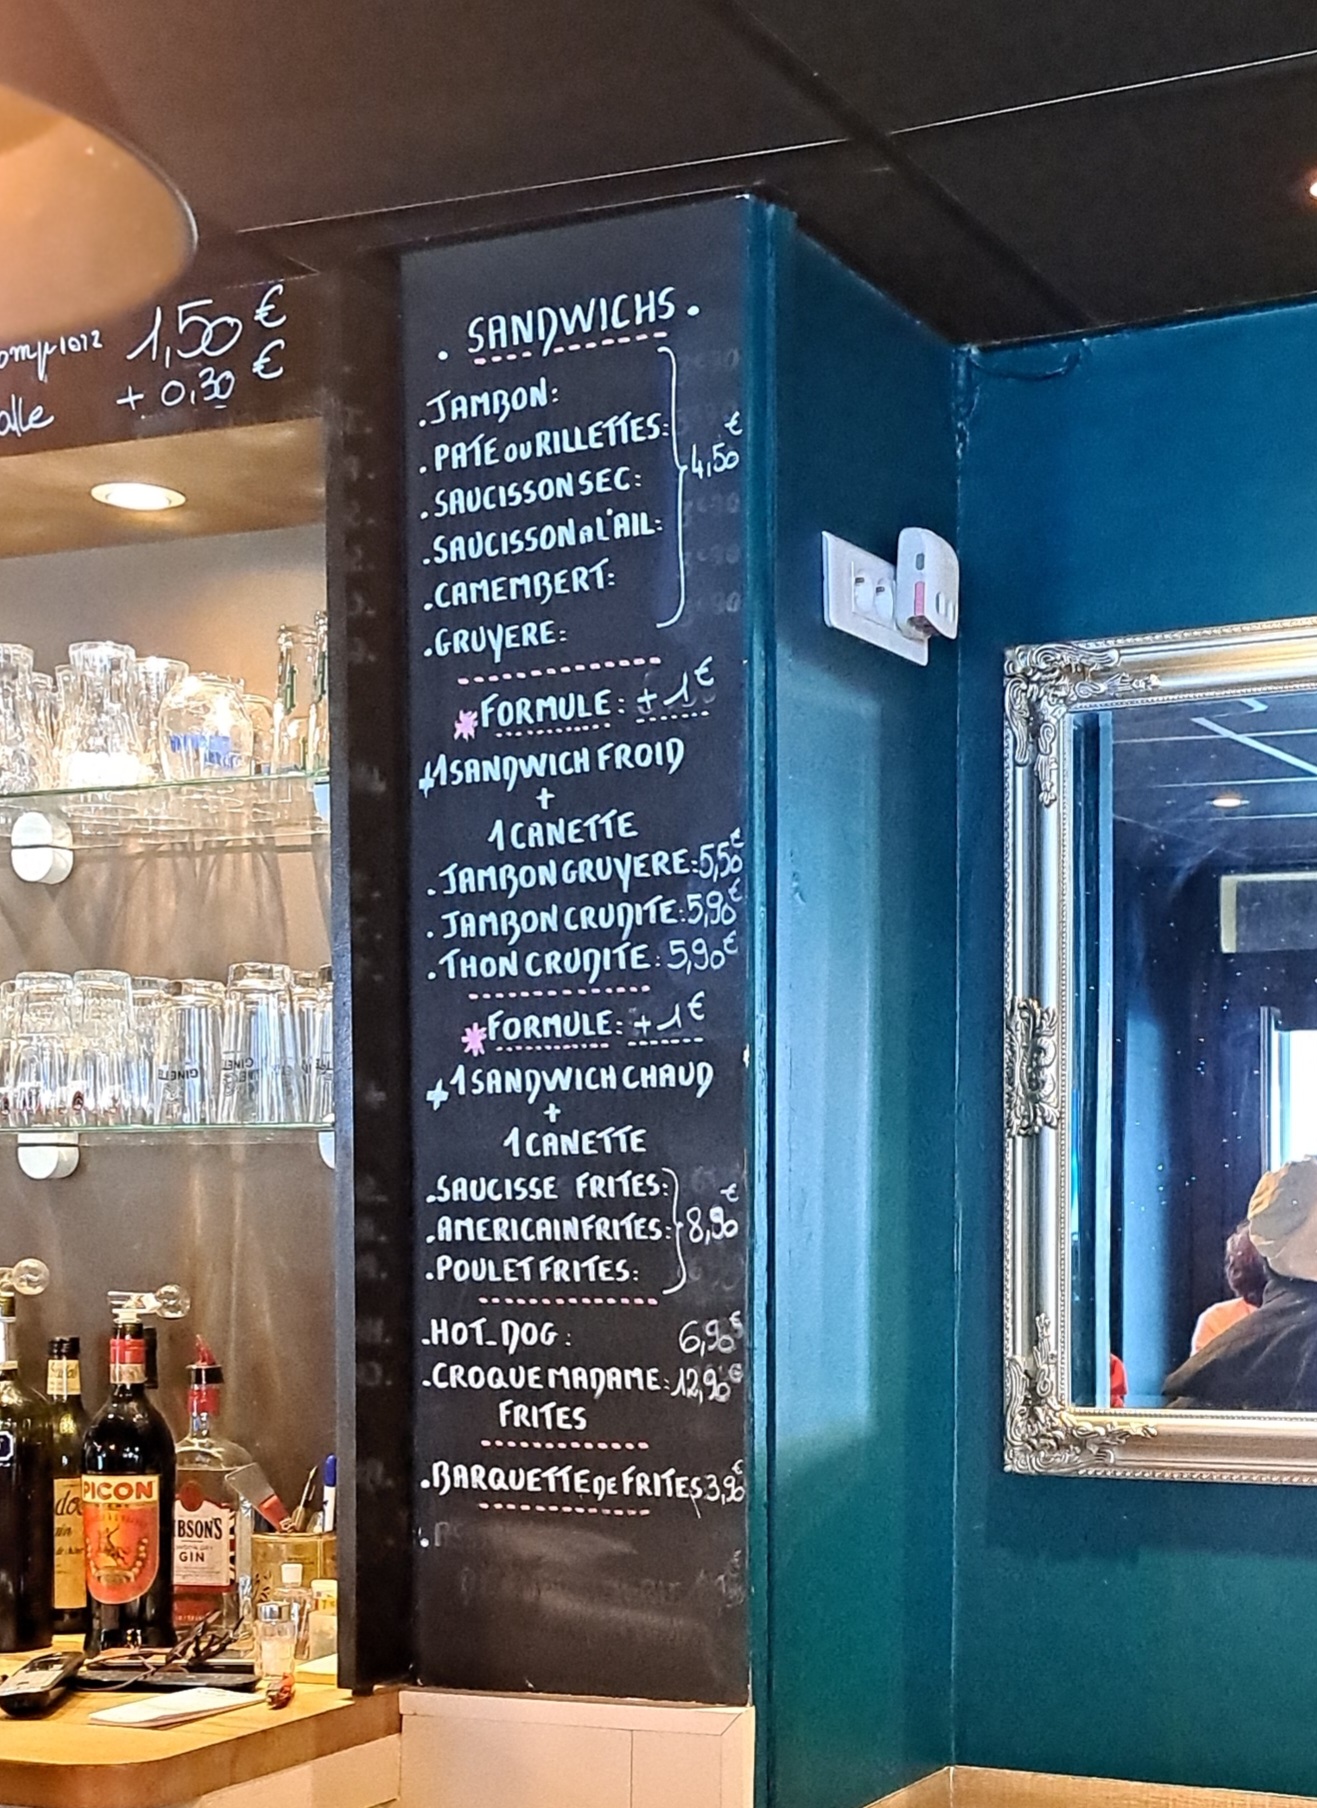 1,50 €
+ 0,30 €
. SANDWICHS .
. JAMBON:
. PATE ou RILLETTES:
. SAUCISSON SEC:
€
4,50
. SAUCISSON a L'AIL:
. CAMEMBERT:
. GRUYERE:
FORMULE: + 1€
+1 SANDWICH FROID
+
1 CANETTE
. JAMBON GRUYERE: 5,50€
. JAMBON CRUDITE: 5,90€
. THON CRUDITE: 5,90€
FORMULE: + 1€
+1 SANDWICH CHAUD
+
1 CANETTE
. SAUCISSE FRITES:
. AMERICAIN FRITES:
€
8,90
. POULET FRITES:
. HOT-DOG: 6,90€
. CROQUE MADAME: 12,90€
FRITES
. BARQUETTE DE FRITES 3,90€
PICON
GIN